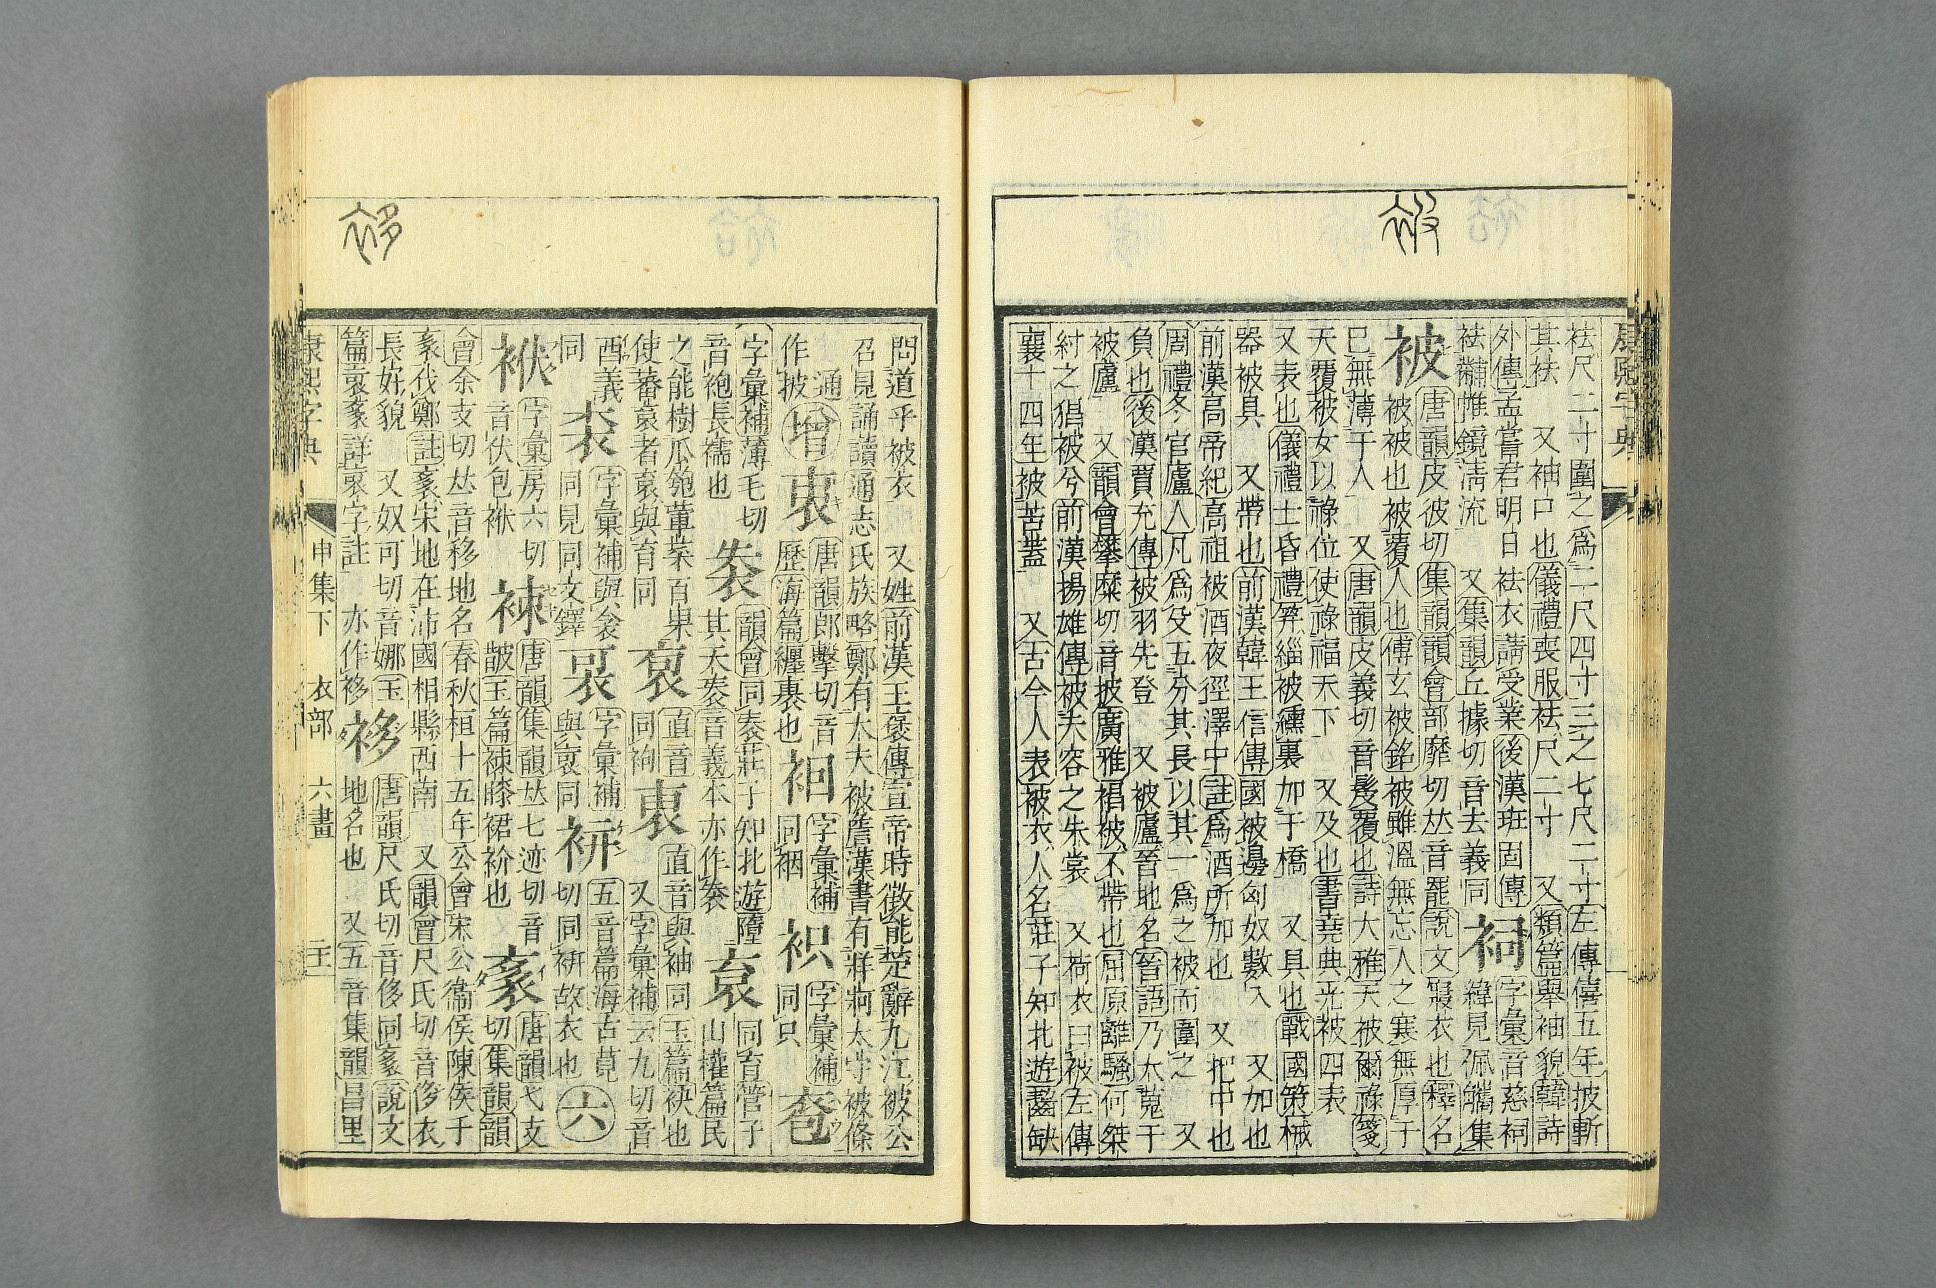 袪尺二寸圍之爲二尺四寸三之七尺二寸左傳僖五年披斬
其袪　又袖口也儀禮喪服袪尺二寸　又類篇舉袖貌韓詩
外傳孟嘗君明日袪衣請受業後漢班固傳
袪黼帷鏡淸流　又集韻丘據切音去義同
祠字彙音慈祠
緯見佩觿集
被唐韻皮彼切集韻韻會部靡切𠀤音罷說文寢衣也釋名
被被也被覆人也傅玄被銘被雖溫無忘人之寒無厚于
巳無薄于人　又唐韻皮義切音髲覆也詩大雅天被爾祿箋
天覆被女以祿位使祿福天下　又及也書堯典光被四表
又表也儀禮士昏禮笲緇被纁裏加于橋　又具也戰國策械
器被具　又帶也前漢韓王信傳國被邊匈奴數入　又加也
前漢高帝紀高祖被酒夜徑澤中註爲酒所加也　又把中也
周禮冬官廬人凡爲殳五分其長以其一爲之被而圍之　又
負也後漢賈充傳被羽先登　又被廬晉地名晉語乃大蒐于
被廬　又韻會攀糜切音披廣雅裮被不帶也屈原離騷何桀
紂之猖被兮前漢揚雄傳被夫容之朱裳　又荷衣曰被左傳
襄十四年被苫蓋　又古今人表被衣人名莊子知北遊齧缺
康熙字典
問道乎被衣　又姓前漢王褒傳宣帝時徵能楚辭九江被公
召見誦讀通志氏族略鄭有大夫被詹漢書有牂牁太守被條
通
作披
增
唐韻郎擊切音
歷海篇纏裹也
字彙補
同裀
字彙補
同只
字彙補薄毛切
音袍長襦也
韻會同袠莊子知北遊墮
其天袠音義本亦作袟
同育管子
山權篇民
之能樹瓜瓠葷菜百果
使蕃袬者袬與育同
直音
同袧
直音與袖同玉篇袂也
又字彙補云九切音
酉義
同
字彙補與衾
同見同文鐸
字彙補
與裒同
五音篇海古莧
切同
故衣也
六
袱字彙房六切
音伏包袱
唐韻集韻𠀤七迹切音
皵玉篇膝裙衸也
袲唐韻弋支
切集韻韻
會余支切𠀤音移地名春秋桓十五年公會宋公衞侯陳侯于
袲伐鄭註袲宋地在沛國相縣西南　又韻會尺氏切音侈衣
長好貌　又奴可切音娜玉
篇袤袲詳裒字註　亦作袳
袳唐韻尺氏切音侈同袲說文
地名也　又五音集韻昌里
康熙字典　申集下　衣部　六畫